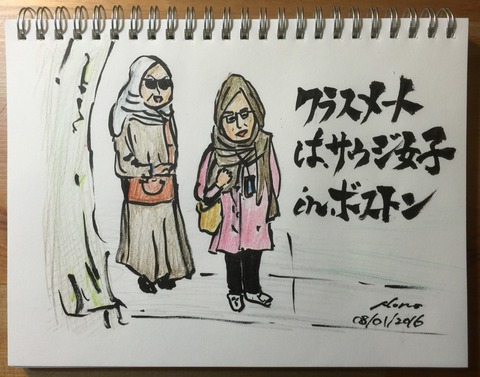 クラスメート
はサウジ女子
inボストン
08/01/2016